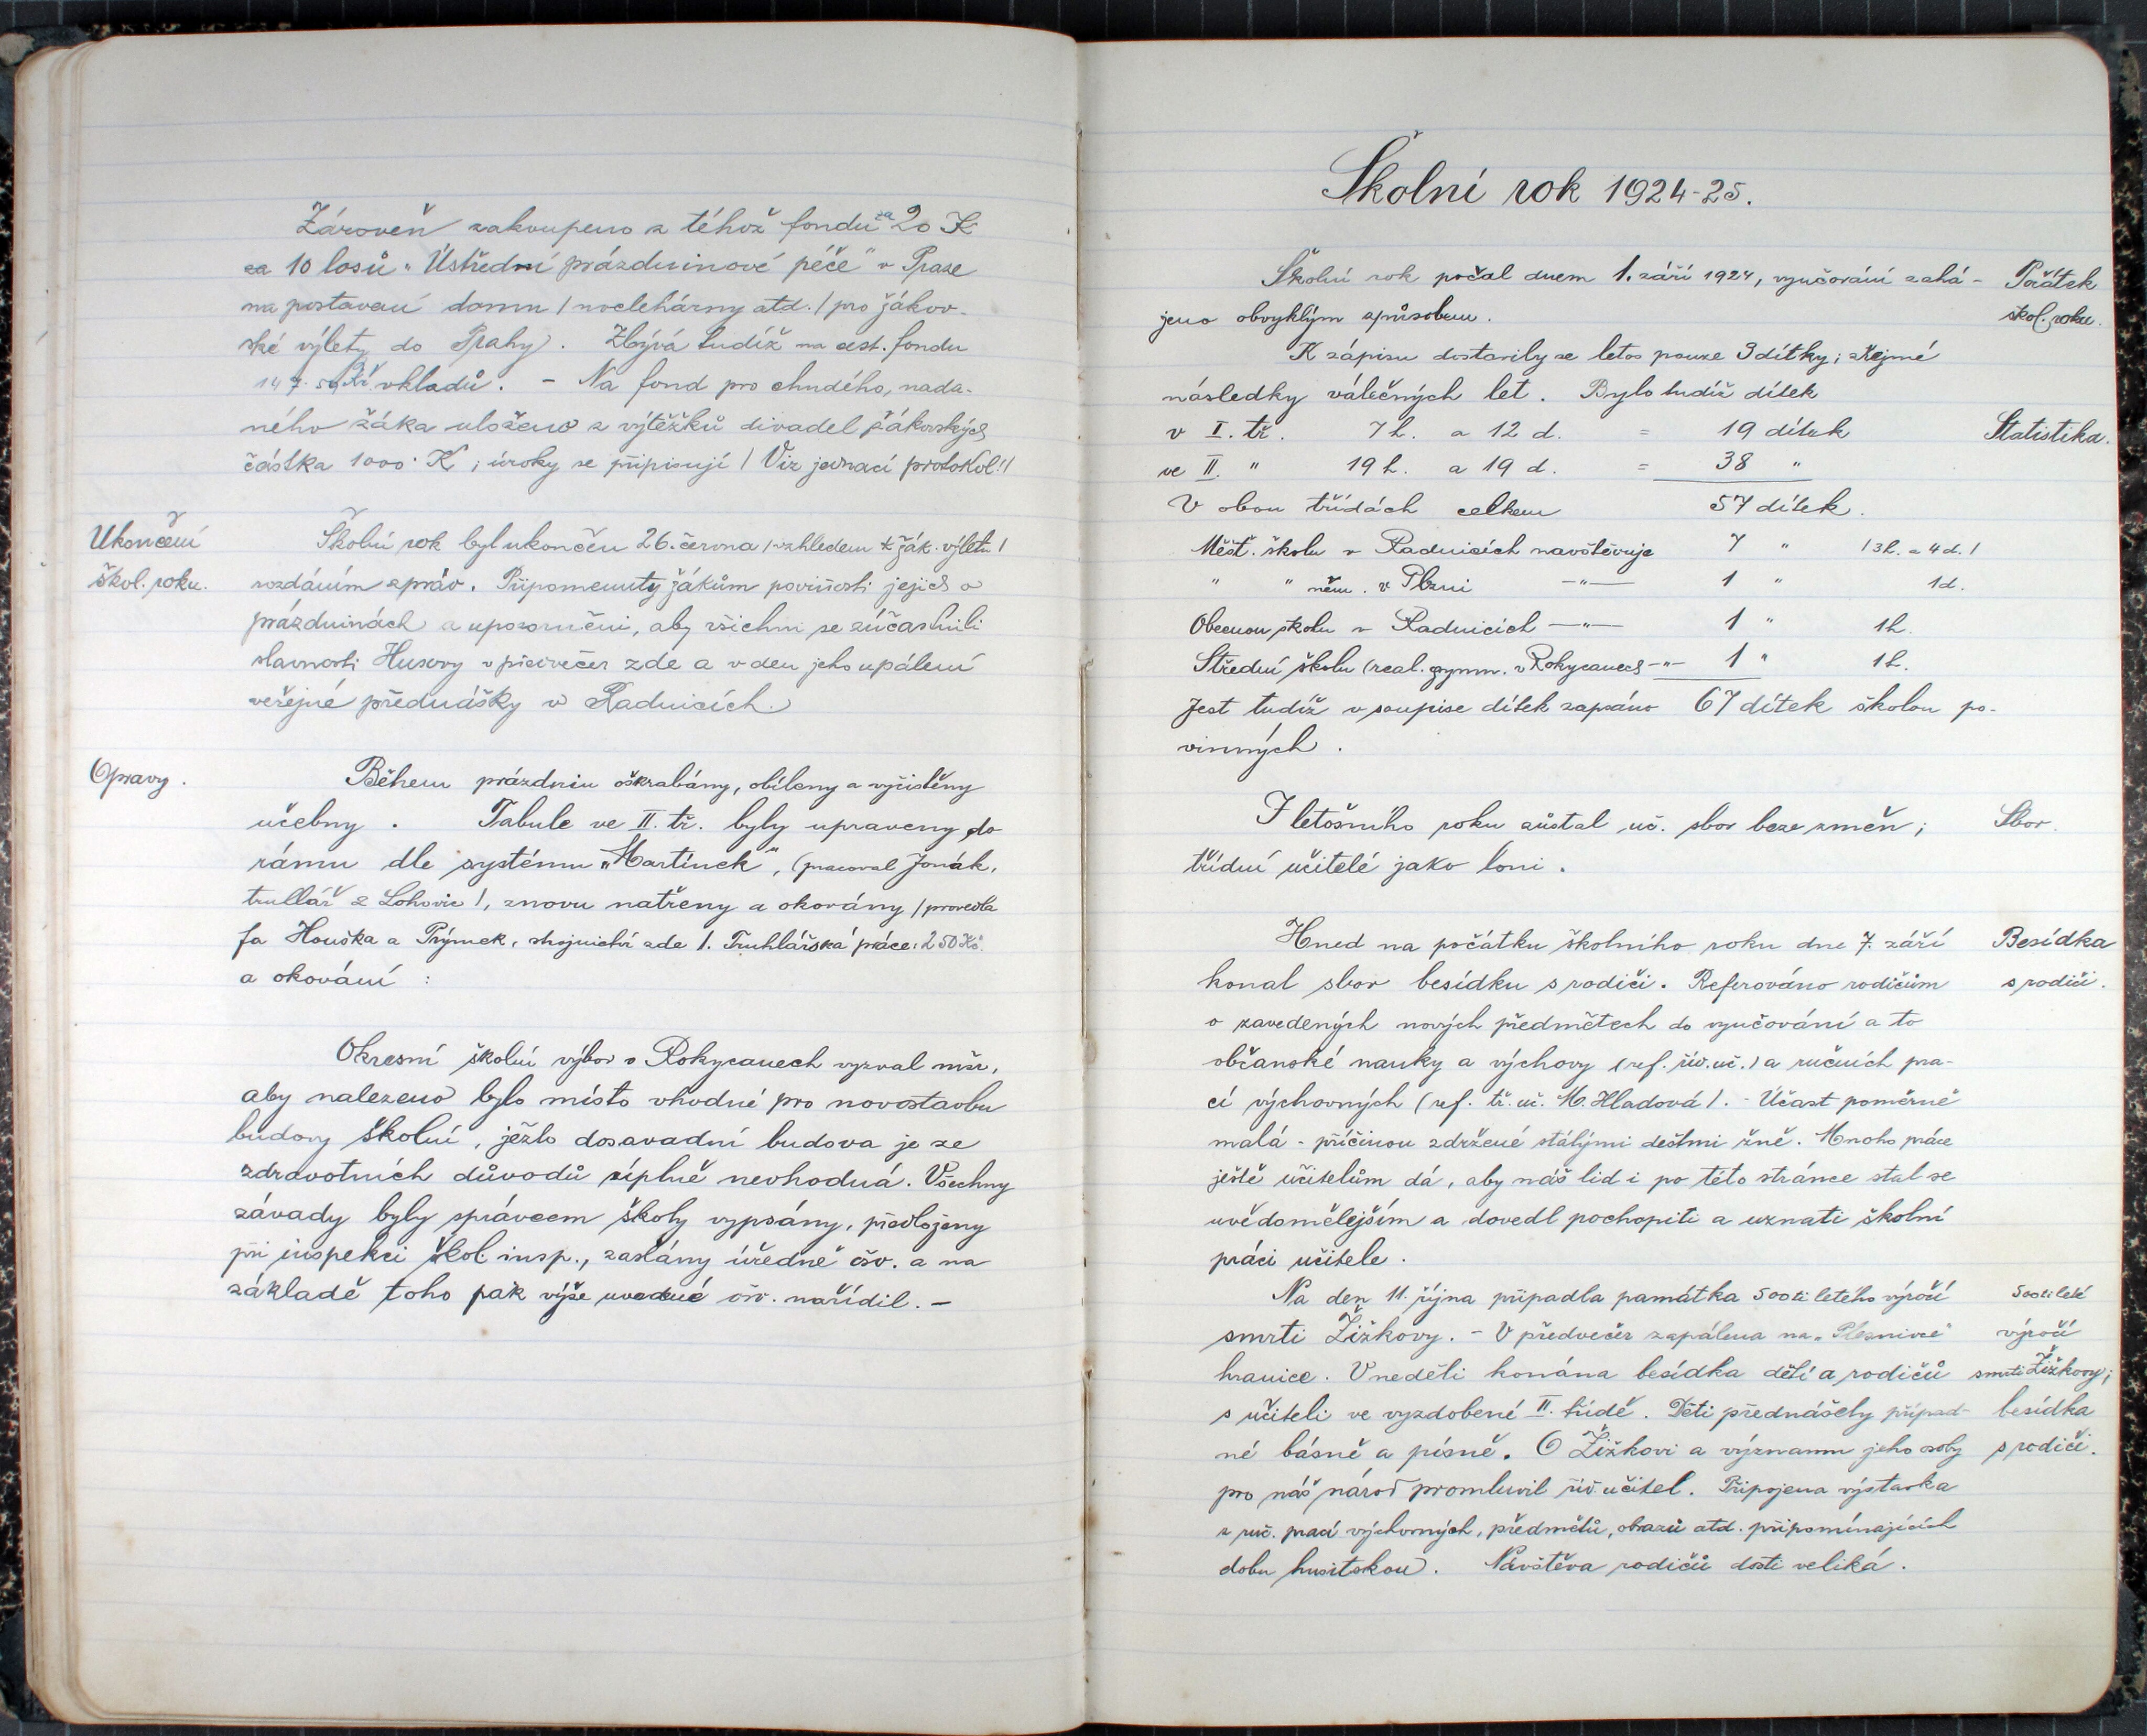 Zároveň zakoupeno z téhož fondu za 20 K
za 10 losů "Ústřední prázdninové péče" v Praze
na postavení domu / noclehárny atd. / pro žákov-
ské výlety do Prahy. Zbývá tudíž na cest. fondu
147.50 Kč vkladů. - Na fond pro chudého, nada-
ného žáka uloženo z výtěžků divadel žákovských
částka 1000 K; úroky se připisují / Viz jednací protokol! /
Ukončení
škol. roku.
Školní rok byl ukončen 26. června / vzhledem k žák. výletu /
rozdáním zpráv. Připomenuty žákům povinosti jejich o
prázdninách a upozorněni, aby všichni se zúčastnili
slavnosti Husovy v předvečer zde a v den jeho upálení
veřejné přednášky v Radnicích.
Opravy.
Během prázdnin oškrabány, obíleny a vyčistěny
učebny. Tabule ve II. tř. byly upraveny do
rámu dle systému "Martínek", (pracoval Jonák,
truhlář z Lohovic /, znovu natřeny a okovány / provedla
fa Houška a Prýmek, strojnictví zde /. Truhlářská práce: 250 Kč.
a okování :
Okresní školní výbor v Rokycanech vyzval mšr,
aby nalezeno bylo místo vhodné pro novostavbu
budovy školní, ježto dosavadní budova je ze
zdravotních důvodů úplně nevhodná. Všechny
závady byly správcem školy vypsány, předloženy
při inspekci škol. insp., zaslány úředně ošv. a na
základě toho pak výše uvedené ošv. nařídil. -
Školní rok 1924-25.
Školní rok počal dnem 1. září 1924, vyučování zahá-
jeno obvyklým způsobem.
Počátek
škol. roku.
K zápisu dostavily se letos pouze 3 dítky; zřejmé
následky válečných let. Bylo tudíž dítek
v I. tř. 7 h. a 12 d. = 19 dítek
Statistika.
ve II. " 19 h. a 19 d. = 38 "
V obou třídách celkem 57 dítek.
Měšť. školu v Radnicích navštěvuje 7 " / 3 h. a 4 d. /
" " něm. v Plzni -"- 1 " 1 d.
Obecnou školu v Radnicích -"- 1 " 1 h.
Střední školu (real. gymn. v Rokycanech -"- 1 " 1 h.
Jest tudíž v soupise dítek zapsáno 67 dítek školou po-
vinných.
I letošního roku zůstal uč. sbor beze změn;
Sbor.
třídní učitelé jako loni.
Hned na počátku školního roku dne 7. září
Besídka
konal sbor besídku s rodiči. Referováno rodičům
s rodiči.
o zavedených nových předmětech do vyučování a to
občanské nauky a výchovy (ref. říd. uč.) a ručních pra-
cí výchovných (ref. tř. uč. M. Hladová /. - Účast poměrně
malá - příčinou zdržené stálými dešťmi žně. Mnoho práce
ještě učitelům dá, aby náš lid i po této stránce stal se
uvědomělejším a dovedl pochopiti a uznati školní
práci učitele.
Na den 11. října připadla památka 500ti letého výročí
500ti leté
smrti Žižkovy. - V předvečer zapálena na "Plesnivce"
výročí
hranice. V neděli konána besídka dětí a rodičů
smrti Žižkovy;
s učiteli ve vyzdobené II. třídě. Děti přednášely případ-
besídka
né básně a písně. O Žižkovi a významu jeho osoby
s rodiči.
pro náš národ promluvil říd. učitel. Připojena výstavka
z ruč. prací výchovných, předmětů, obrazů atd. připomínajících
dobu husitskou. Návštěva rodičů dosti veliká.